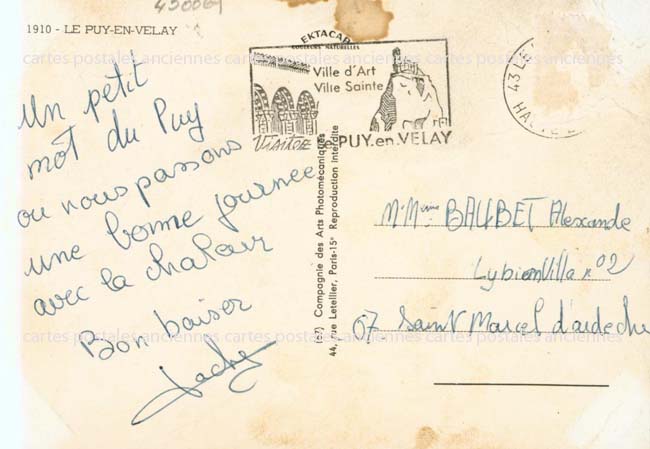 450061
1910 - LE PUY-EN-VELAY
EKTACAP
COULEURS NATURELLES
Ville d'Art
Ville Sainte
Visitez
LE PUY.en.VELAY
43
HAUTE
cartes postales anciennes cartes postales anciennes cartes postales anciennes
Un petit
mot du Puy
ou nous passons
une bonne journee
avec la chaleur
Bon baiser
Jacky
(67) Compagnie des Arts Photomécaniques
44, rue Letellier, Paris-15e Reproduction interdite
M. Mme BALLBET Alexande
Lybion Villa n° 02
07 Saint Marcel d'ardeche
cartes postales anciennes cartes postales anciennes cartes postales anciennes